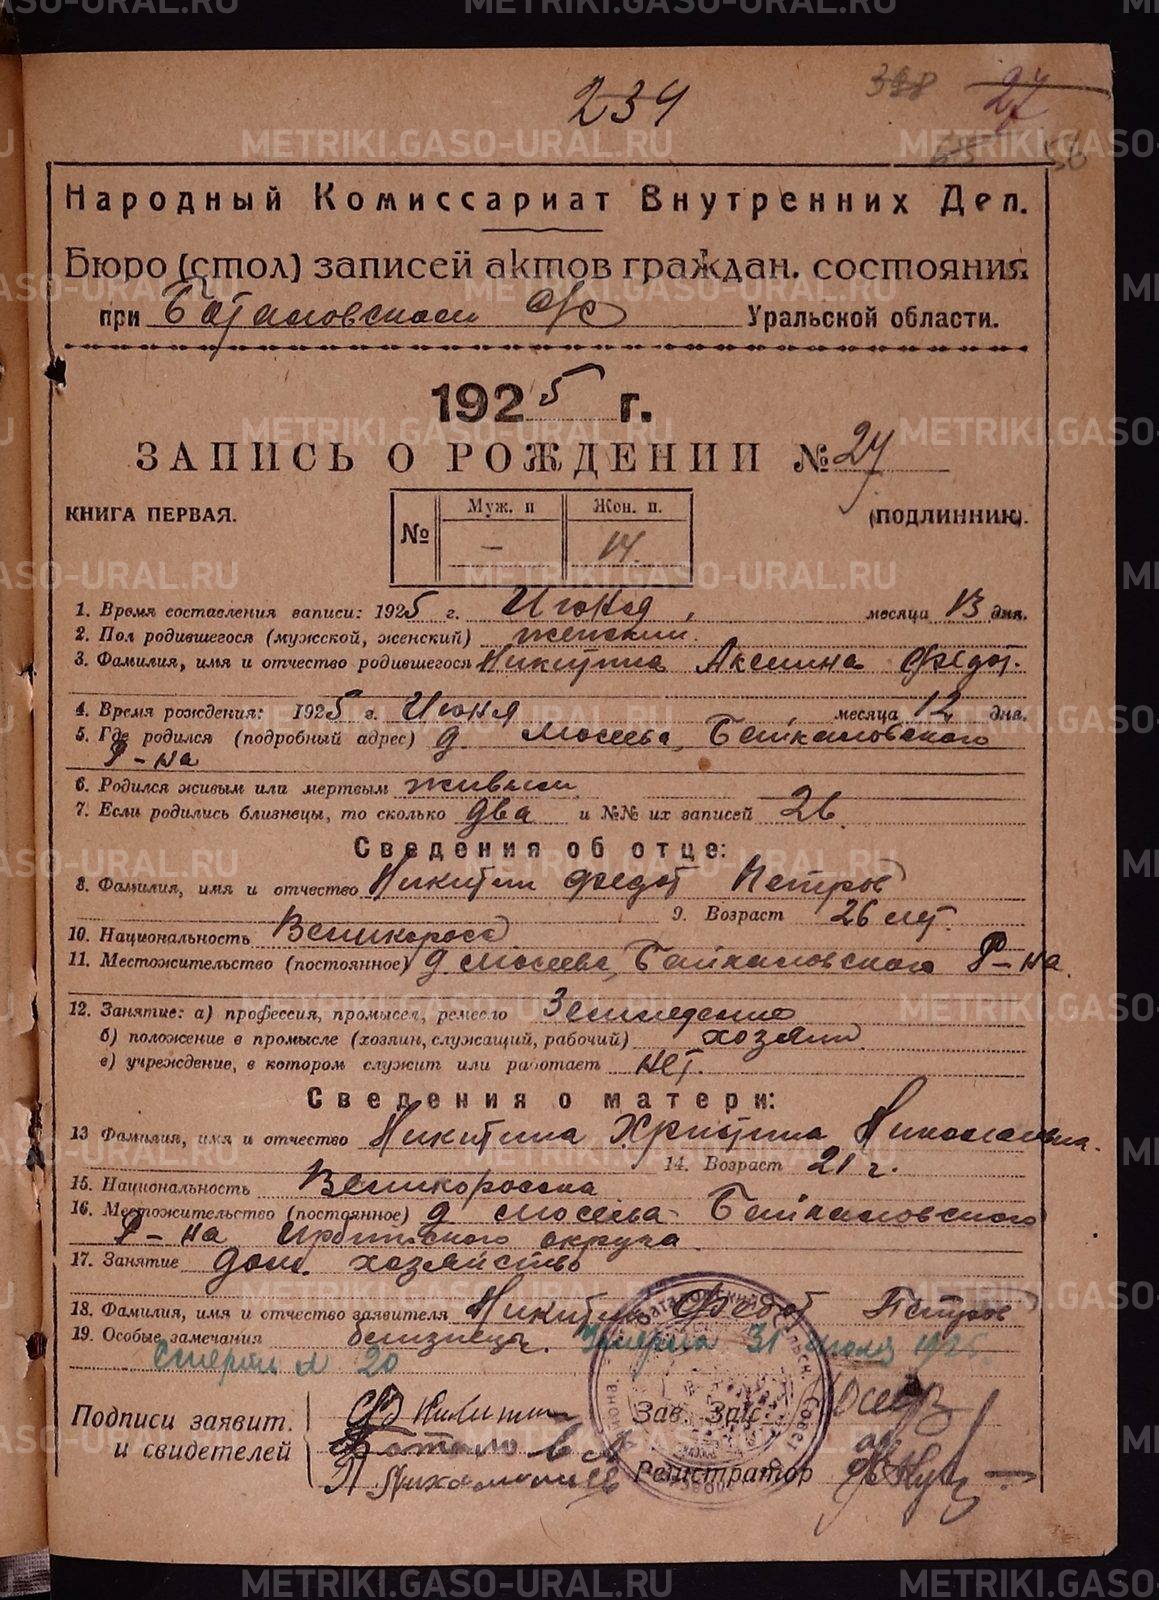 234 27
Народный Комиссариат Внутренних Дел.
Бюро (стол) записей актов граждан. состояния
при с/с Уральской области.
1925 г.
ЗАПИСЬ О РОЖДЕНИИ № 27
КНИГА ПЕРВАЯ. (ПОДЛИННИК).
№ Муж. п Жен. п.
— 14.
1. Время составления записи: 1925 г. Июля, месяца 13 дня.
2. Пол родившегося (мужской, женский) женский.
3. Фамилия, имя и отчество родившегося Никитина Федот.
4. Время рождения: 1925 г. Июля месяца 12 дня.
5. Где родился (подробный адрес) д Мосеева, Байкаловского
Р-на
6. Родился живым или мертвым живым
7. Если родились близнецы, то сколько два и №№ их записей 26.
Сведения об отце:
8. Фамилия, имя и отчество Никитин Федот Петров
9. Возраст 26 лет.
10. Национальность Великоросс
11. Местожительство (постоянное) д Мосеева, Байкаловского Р-на.
12. Занятие: а) профессия, промысел, ремесло Земледелие
б) положение в промысле (хозяин, служащий, рабочий) хозяин
в) учреждение, в котором служит или работает нет.
Сведения о матери:
13 Фамилия, имя и отчество Никитина Христина Николаевна.
14. Возраст 21 г.
15. Национальность Великоросска
16. Местожительство (постоянное) д Мосеева Байкаловского
Р-на Ирбитского округа
17. Занятие дом. хозяйство
18. Фамилия, имя и отчество заявителя Никитин Федот Петров
19. Особые замечания близнецы. Умерла 31 июля 1925.
№ 20
Подписи заявит. Ф Никитин Зав. Загс.
и свидетелей
Регистратор
METRIKI.GASO-URAL.RU